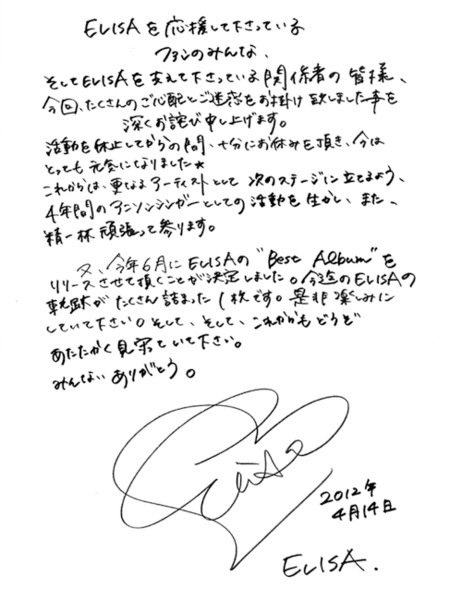 ELISAを応援して下さっている
ファンのみんな、
そしてELISAを支えて下さっている関係者の皆様、
今回、たくさんのご心配とご迷惑をお掛け致しました事を
深くお詫び申し上げます。
活動を休止してからの間、十分にお休みを頂き、今は
とっても元気になりました★
これからは、更なるアーティストとして次のステージに立てるよう、
4年間のアニソンシンガーとしての活動を生かし、また、
精一杯頑張って参ります。
又、今年6月にELISAの"Best Album"を
リリースさせて頂くことが決定しました。今迄のELISAの
軌跡がたくさん詰まった1枚です。是非楽しみに
していて下さい。そして、そして、これからもどうぞ
あたたかく見守っていて下さい。
みんな、ありがとう。
2012年
4月14日
ELISA.